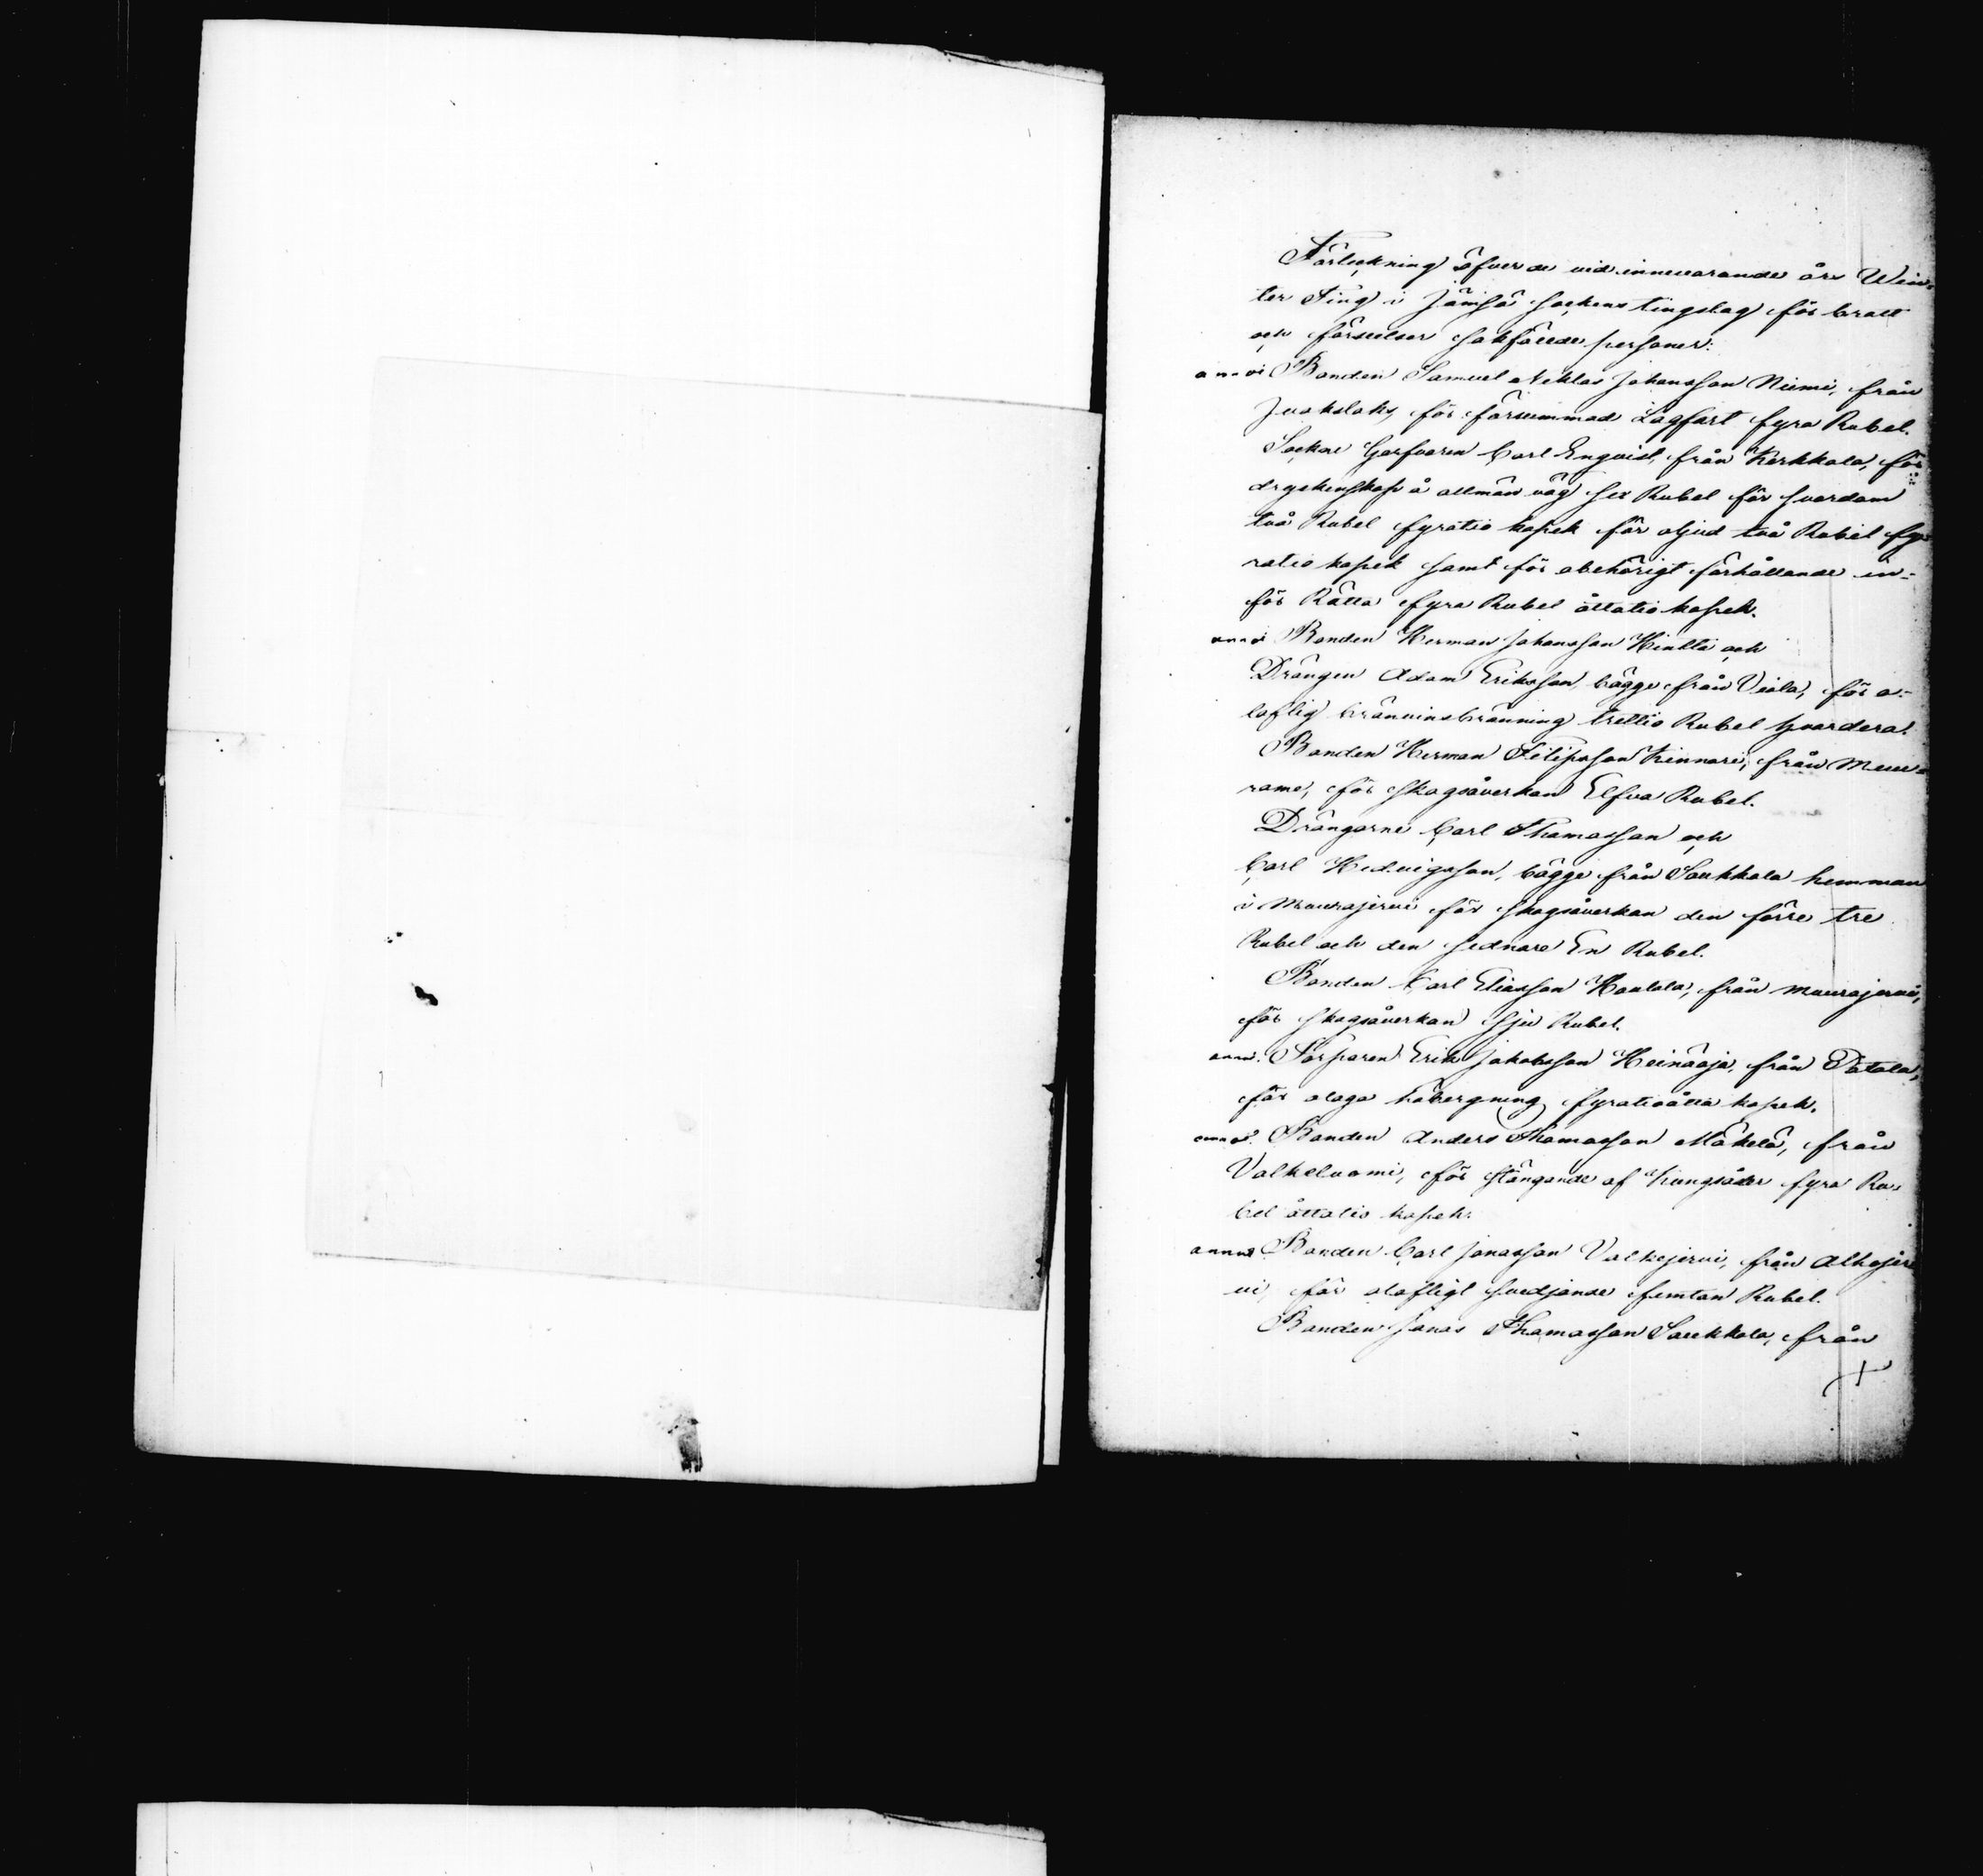 Förteckning öfver de vid innevarande års Win-
ter Ting i Jämsä Sockens tingslag för brott
och förseelser sakfällde personer:
Bonden Samuel Niklas Johansson Niemi, från
Juokslaks, för försummad Lagfart fyra Rubel.
Sockne Garfvaren Carl Enqvist, från Kerkkola, för
dryckenskap å allmän väg sex Rubel för svordom
två Rubel fyratio kopek för oljud två Rubel fy-
ratio kopek samt för obehörigt förhållande in-
för Rätta fyra Rubel åttatio kopek.
Bonden Herman Johansson Hintta och
Drängen Adam Eriksson, bägge från Viala, för o-
laflig bränvinsbränning trettio Rubel hvardera.
Bonden Herman Filipsson Kinnari, från Muu-
rame, för skogsåverkan Elfva Rubel.
Drängarne Carl Thomasson och
Carl Hedvigsson, bägge från Saukkola hemman
i Muurajervi för skogsåverkan den förre tre
Rubel och den sednare En Rubel.
Bonden Carl Eliasson Hautala, från Muurajervi,
för skogsåverkan sju Rubel.
Torparen Erik Jakobsson Heinäaja, från Patala,
för olaga höbergning fyratioåtta kopek.
Bonden Anders Thomasson Mäkelä, från
Valkeluomi, för stängande af Kungsåder fyra Ru-
bel åttatio kopek.
Bonden Carl Jonasson Valkejervi, från Alhojer
vi, för olofligt svedjande femton Rubel.
Bonden Jonas Thomasson Saukkola, från